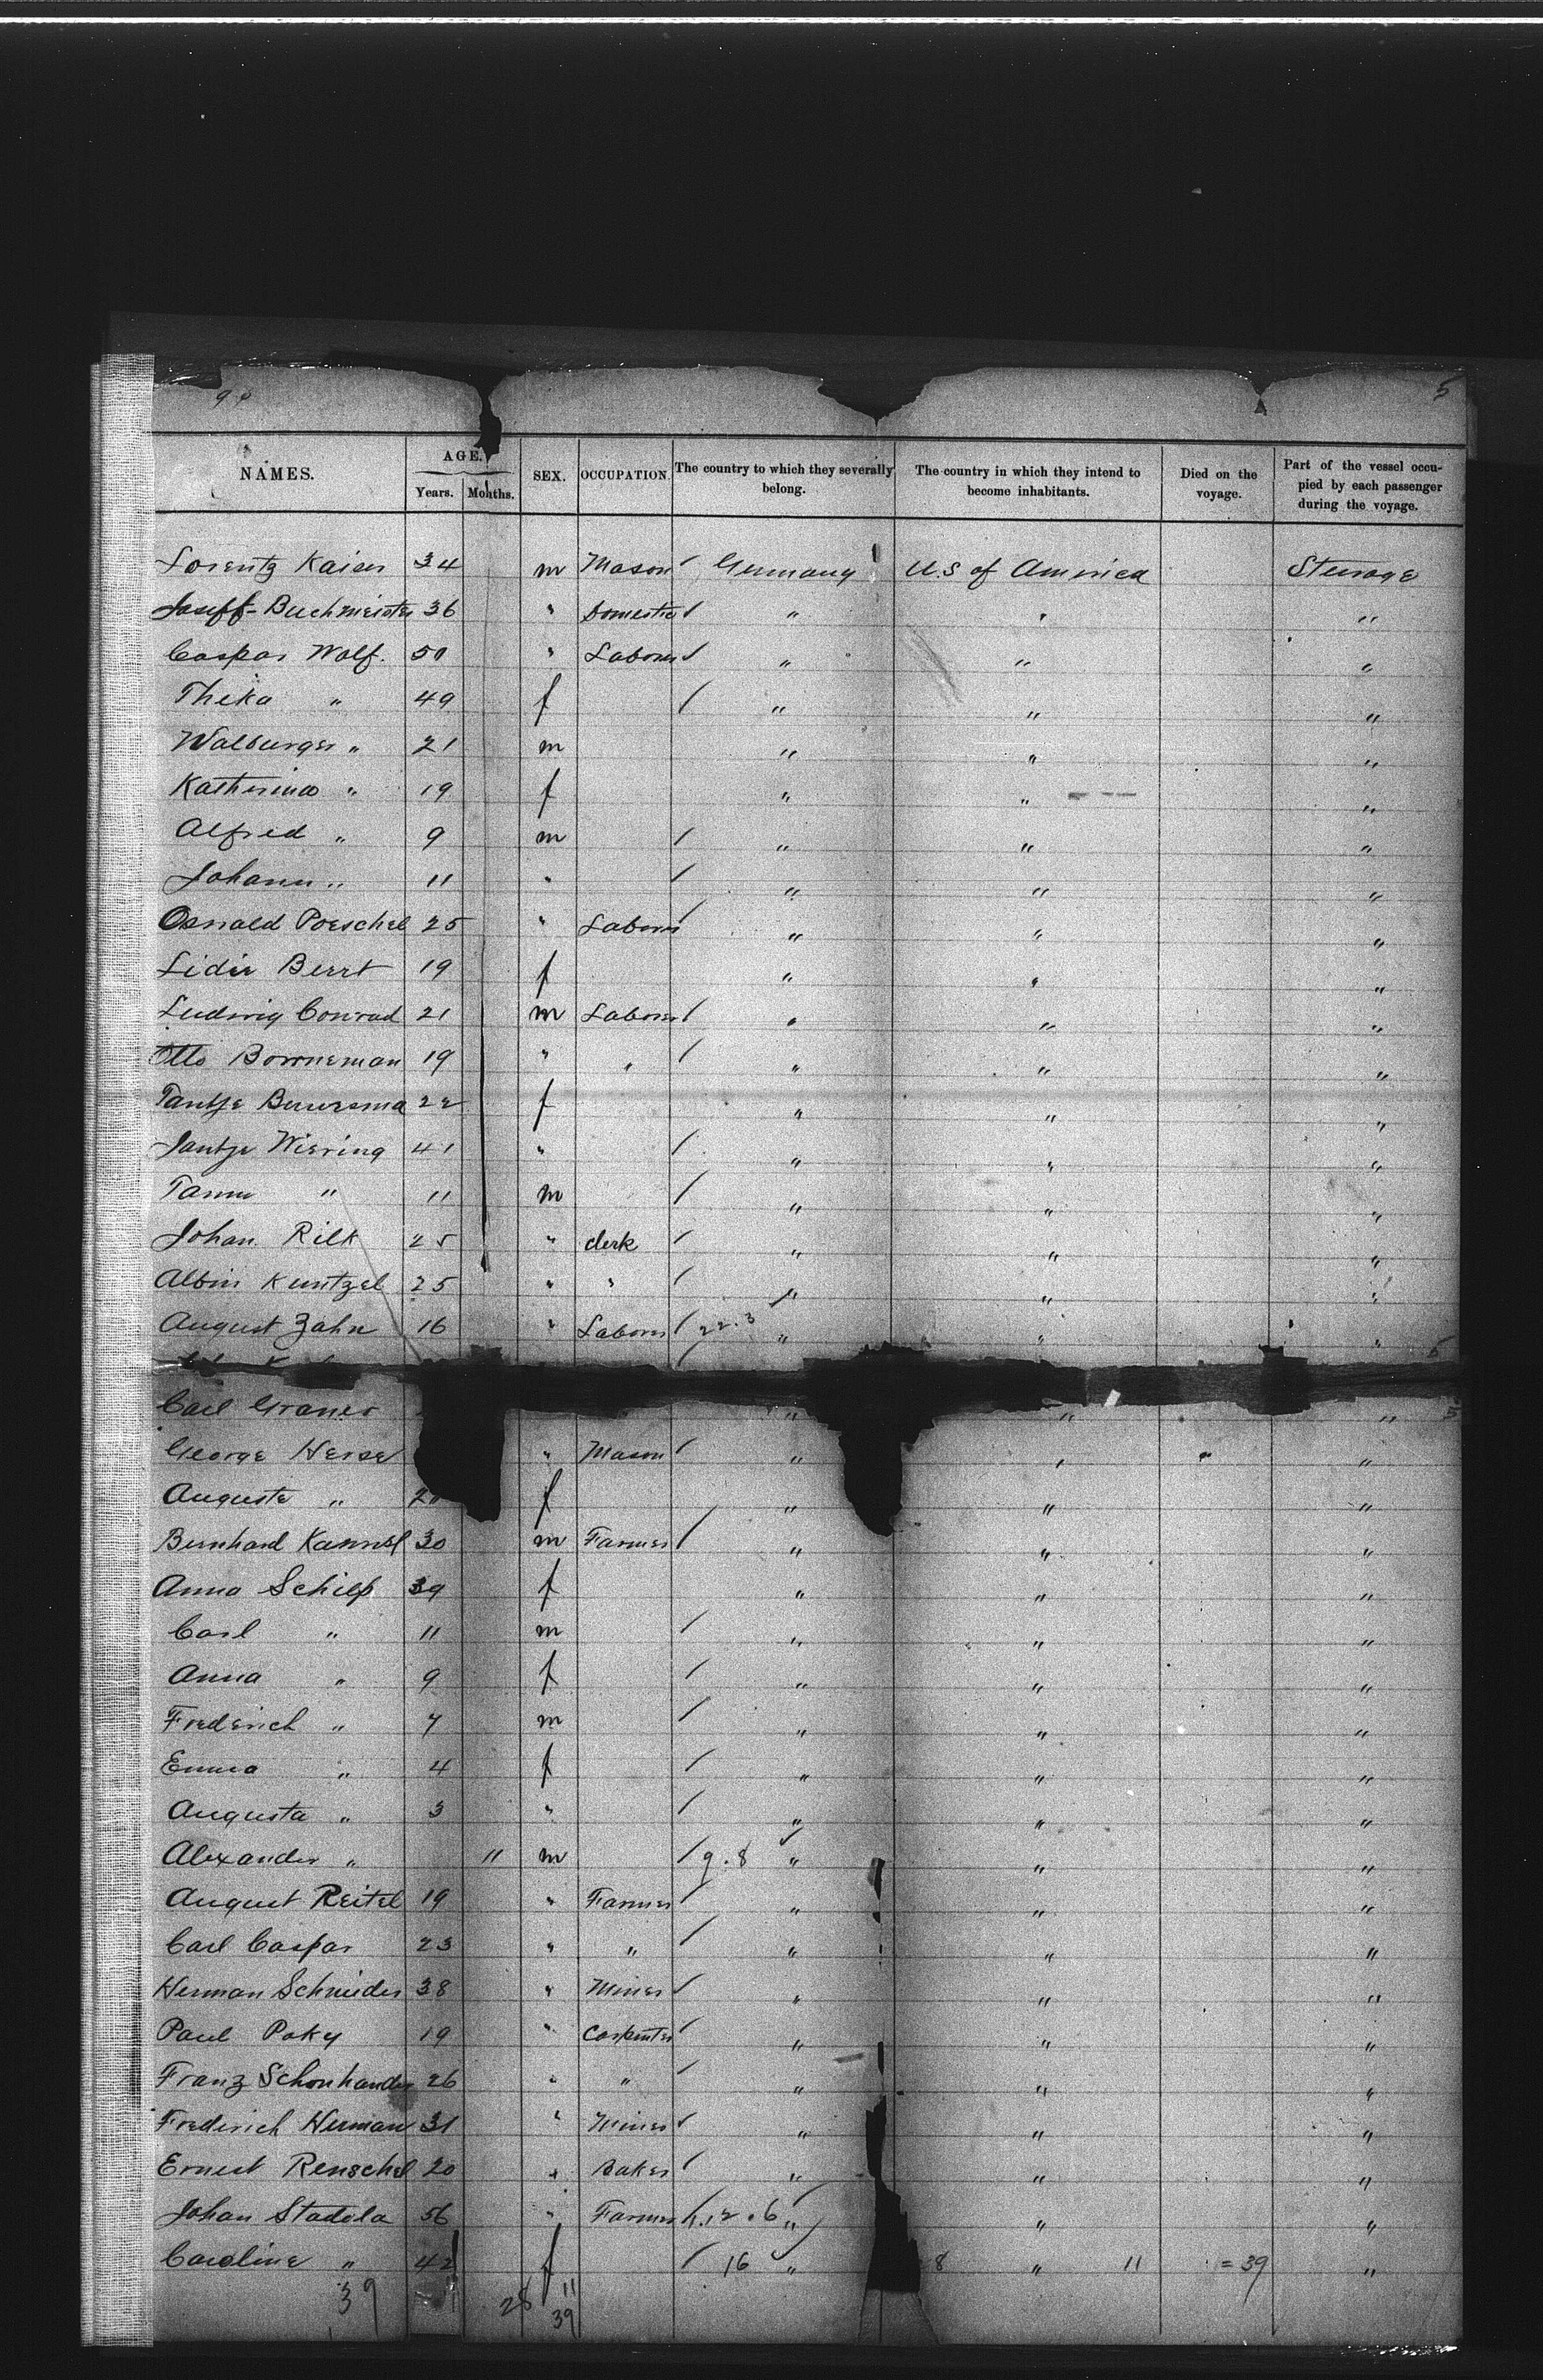 5
NAMES. AGE. Years. Months. SEX. OCCUPATION. The country to which they severally belong. The country in which they intend to become inhabitants. Died on the voyage. Part of the vessel occupied by each passenger during the voyage.
Lorentz Kaiser 34 m Mason / Germany U.S of America Steerage
Buchmeister 36 " Domestic / " " "
Caspar Wolf. 50 " Laborer / " " "
Theka " 49 f / " " "
Walburger " 21 m " " "
Katherina " 19 f " " "
Alfred " 9 m / " " "
Johann " 11 " / " " "
Oswald Poeschel 25 " Laborer / " " "
Lidie 19 f " " "
Ludwig Conrad 21 m Laborer / " " "
Otto Borneman 19 " " / " " "
Tantje 22 f " " "
Jantje Wiering 41 " / " " "
" 11 m / " " "
Johan Rilk 25 " clerk / " " "
Albin Kuntzel 25 " " / " " "
August Zahn 16 " Laborer / 22.3 " " " 5
Carl Graner " " "
George Herse " Mason / " " "
Auguste " f " " "
Bernhard 30 m Farmer / " " "
Anna Schilp 39 f " " "
Carl " 11 m / " " "
Anna " 9 f / " " "
Frederich " 7 m / " " "
Emma " 4 f / " " "
Augusta " 3 " / " " "
Alexander " 11 m / 9.8 " " "
August Reitel 19 " Farmer / " " "
Carl Caspar 23 " " / " " "
Herman Schneider 38 " Miner / " " "
Paul Poky 19 " Carpenter / " " "
Franz Schonhander 26 " " / " " "
Frederich Herman 31 " Miner / " " "
Ernest Renschel 20 " Baker / " " "
Johan Stadela 56 " Farmer 12.6 " " "
Caroline " 42 f / 16 " 8 " 11 = 39 "
39 28 11
39